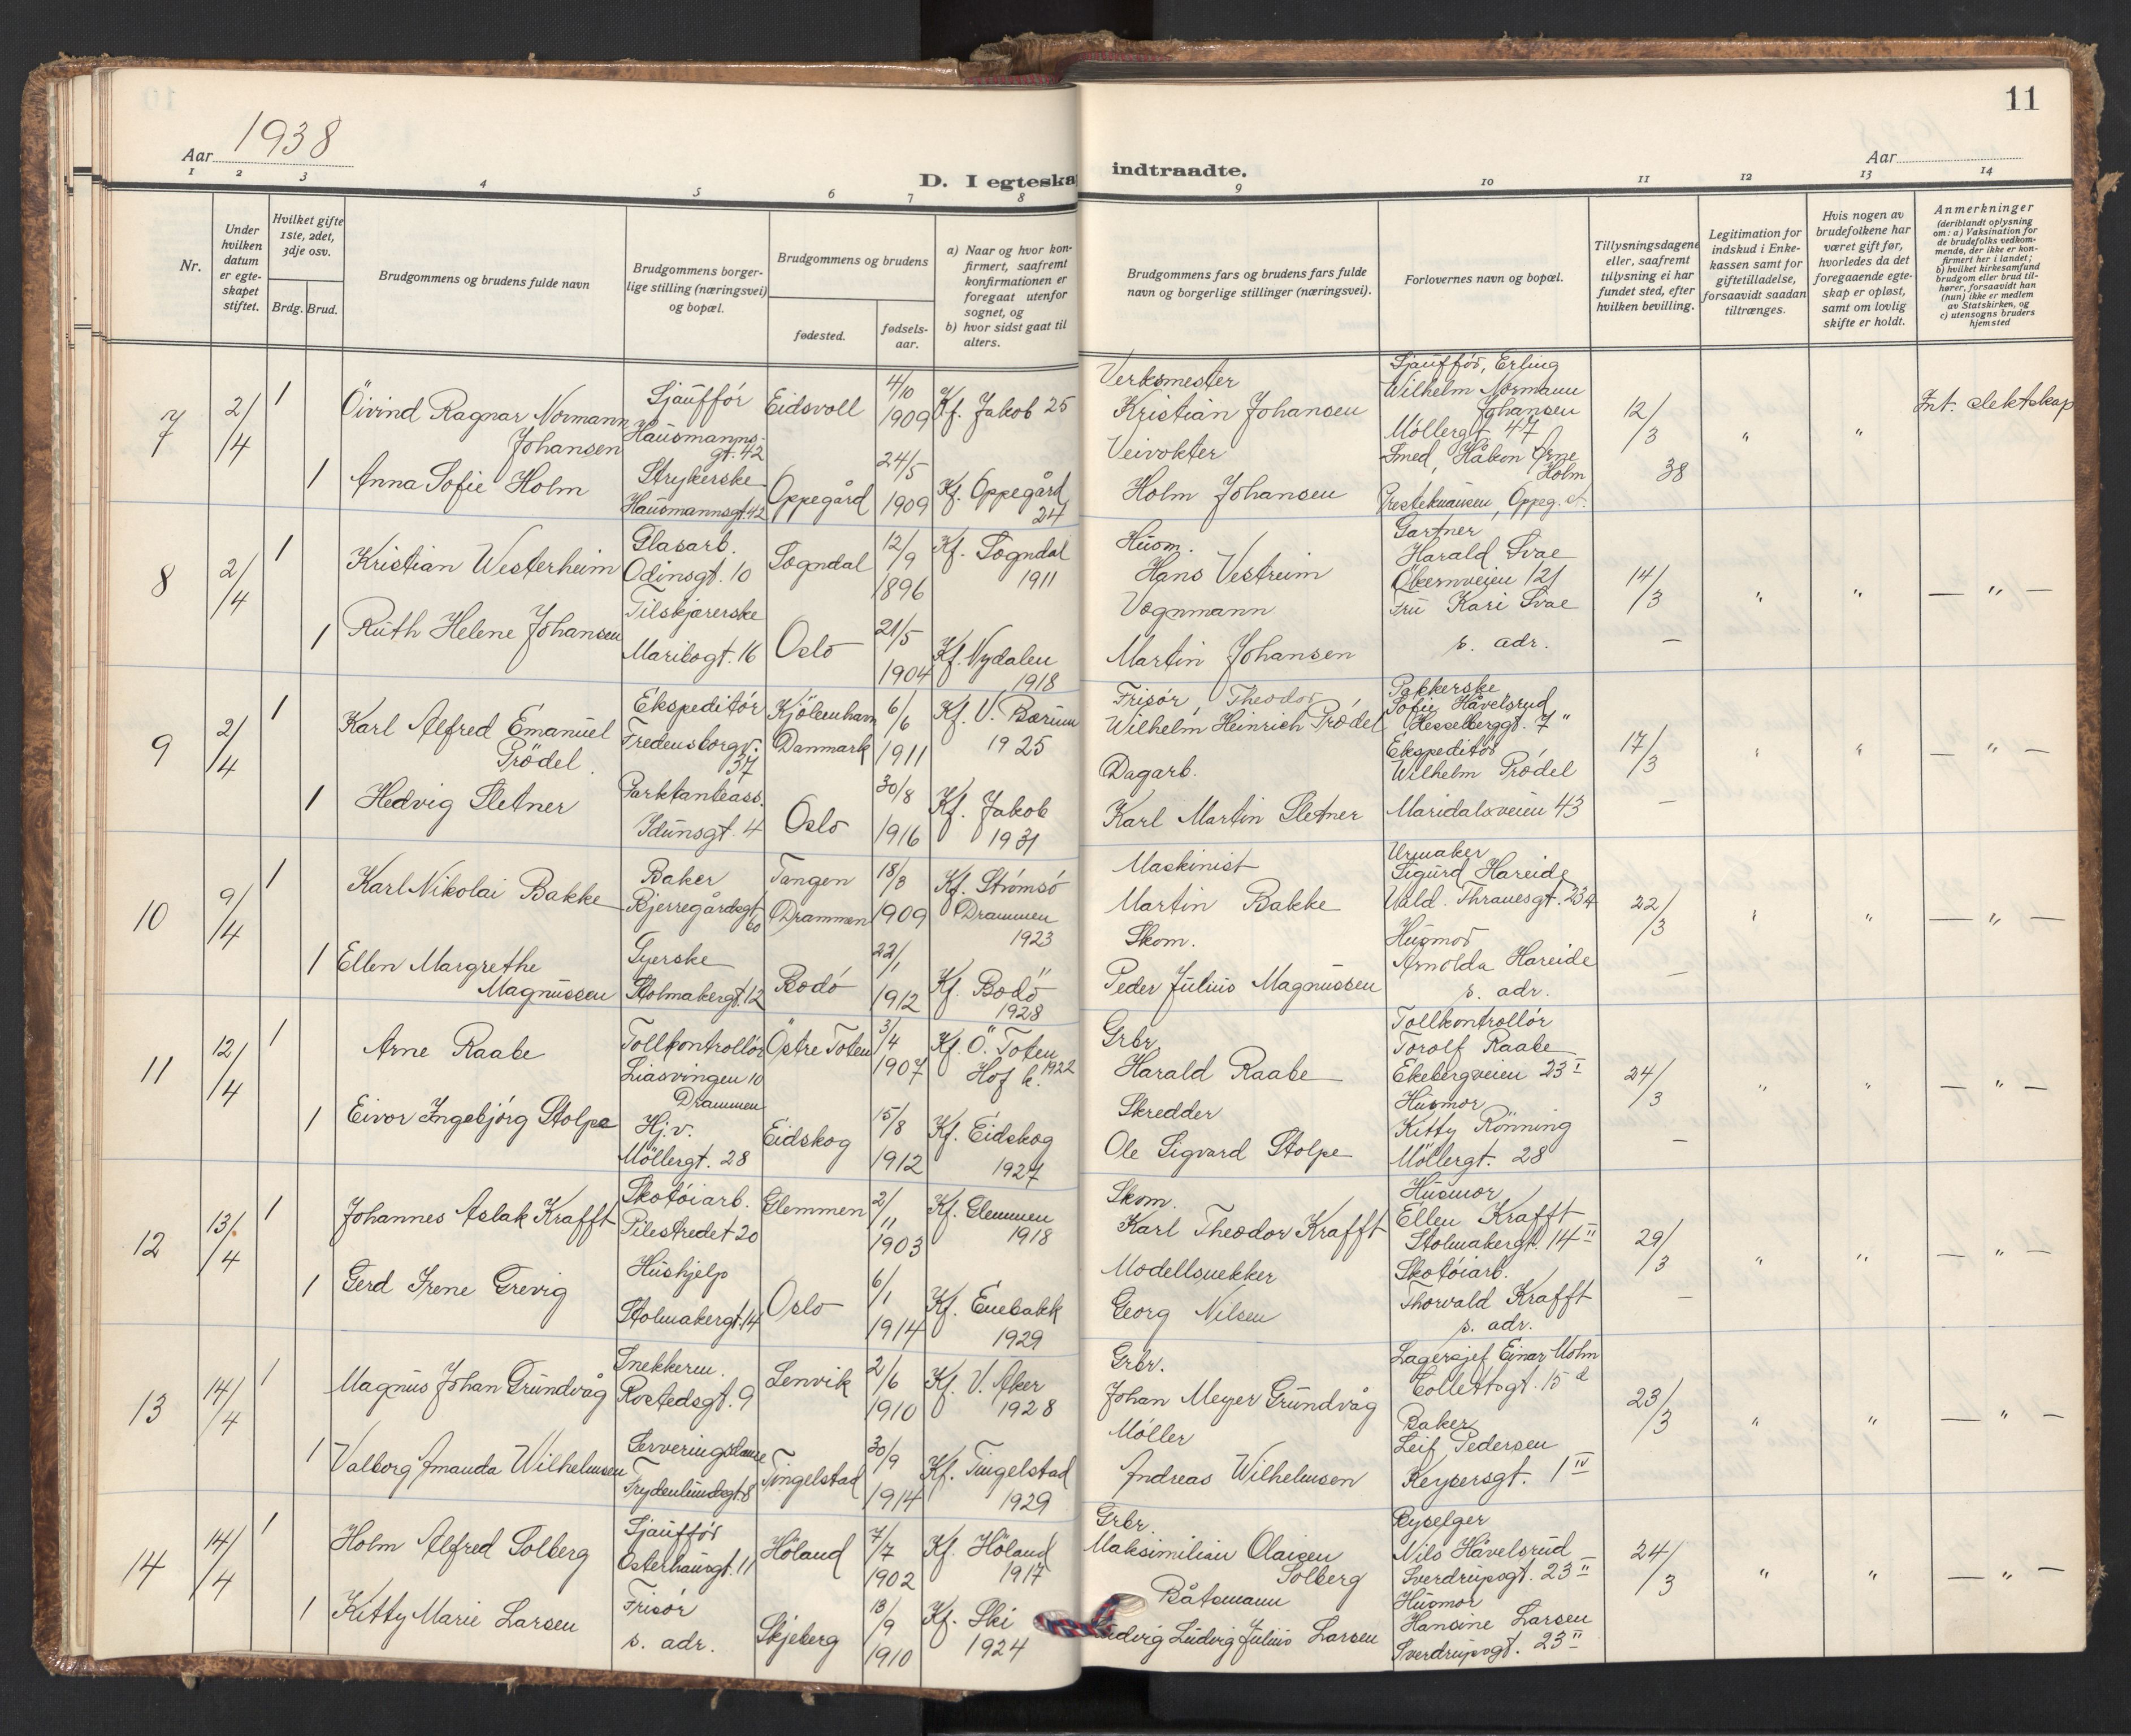 11
Aar 1938
Aar
D. I egteskap indtraadte.
1 2 3 4 5 6 7 8 9 10 11 12 13 14
Nr.
Under hvilken datum er egteskapet stiftet.
Hvilket gifte 1ste, 2det, 3dje osv.
Brdg. Brud.
Brudgommens og brudens fulde navn
Brudgommens borgerlige stilling (næringsvei) og bopæl.
Brudgommens og brudens
fødested.
fødselsaar.
a) Naar og hvor konfirmert, saafremt konfirmationen er foregaat utenfor sognet, og
b) hvor sidst gaat til alters.
Brudgommens fars og brudens fars fulde navn og borgerlige stillinger (næringsvei).
Forlovernes navn og bopæl.
Tillysningsdagene eller, saafremt tillysning ei har fundet sted, efter hvilken bevilling.
Legitimation for indskud i Enkekassen samt for giftetilladelse, forsaavidt saadan tiltrænges.
Hvis nogen av brudefolkene har været gift før, hvorledes da det foregaaende egteskap er opløst, samt om lovlig skifte er holdt.
Anmerkninger
(deriblandt oplysning om: a) Vaksination for de brudefolks vedkommende, der ikke er konfirmert her i landet; b) hvilket kirkesamfund brudgom eller brud tilhører, forsaavidt han (hun) ikke er medlem av Statskirken, og c) utensogns bruders hjemsted
7 2/4 1 Öivind Ragnar Normann Johansen Sjåuffór Hausmannsgt. 42 Eidsvoll 4/10 1909 Kf. Jakob 25 Verksmester Kristian Johansen Sjauffór, Erling Wilhelm Normann Johansen Möllergt 47 12/3 " " Int. slektskap
1 Anna Sofie Holm Strykerske Hausmannsgt. 42 Oppegård 24/5 1909 Kf. Oppegård 24 Veivokter Holm Johansen Smed, Håkon Arne Holm Oppeg. st. 38
8 2/4 1 Kristian Westerheim Glasarb. Odinsgt. 10 Sogndal 12/9 1896 Kf. Sogndal 1911 Husm. Hans Vestreim Gartner Harald Svae Økernveien 121 14/3 " " — " —
1 Ruth Helene Johansen Tilskjærerske Maribogt. 16 Oslo 21/5 1904 Kf. Nydalen 1918 Vognmann Martin Johansen Fru Kari Svae s. adr. —
9 2/4 1 Karl Alfred Emanuel Prödel Ekspeditór Fredensborgv. 37 Kjöbenhavn Danmark 6/6 1911 Kf. V. Bærum 1925 Frisór, Theodor Wilhelm Heinrich Prödel Pakkerske Sofie Håvelsrud Hesselberggt. 7" 17/3 " " — " —
1 Hedvig Sletner Parktanteass. Idunsgt. 4 Oslo 30/8 1916 Kf. Jakob 1931 Dagarb. Karl Martin Sletner Ekspeditór Wilhelm Prödel Maridalsveien 43 —
10 9/4 1 Karl Nikolai Bakke Baker Bjerregårdsgt 60 Tangen Drammen 18/3 1909 Kf. Strómsó Drammen 1923 Maskinist Martin Bakke Urmaker Sigurd Hareide Vald. Thranesgt. 23A 22/3 " " — " —
1 Ellen Margrethe Magnussen Syerske Stolmakergt. 12 Bodó 22/1 1912 Kf. Bodö 1928 Skom. Peder Julius Magnussen Husmor Arnolda Hareide s. adr. —
11 12/4 1 Arne Raabe Tollkontrollór Liasvingen 10 Drammen Östre Toten 3/4 1907 Kf. Ö. Toten Hof k. 1922 Grbr. Harald Raabe Tollkontrollór Torolf Raabe Ekebergveien 23 I 24/3 " " — " —
1 Eivor Ingebjórg Stolpe Hj.v. Möllergt. 28 Eidskog 15/8 1912 Kf. Eidskog 1927 Skredder Ole Sigvard Stolpe Husmor Kitty Rönning Möllergt. 28 —
12 13/4 1 Johannes Aslak Krafft Skotóiarb. Pilestredet 20 Glemmen 2/11 1903 Kf. Glemmen 1918 Skom. Karl Theodor Krafft Husmor Ellen Krafft Stolmakergt. 14 II 29/3 " " — " —
1 Gerd Irene Grevig Hushjelp Stolmakergt. 14 Oslo 6/1 1914 Kf. Enebakk 1929 Modellsnekker Georg Nilsen Skotóiarb. Thorvald Krafft s. adr. —
13 14/4 1 Magnus Johan Grundvåg Snekkerm. Rostedsgt. 9 Lenvik 2/6 1910 Kf. V. Aker 1928 Grbr. Johan Meyer Grundvåg Lagersjef Einar Mohn Collettsgt. 15 d 23/3 " " — " —
1 Valborg Amanda Wilhelmsen Serveringsdame Frydenlundsgt. 8 Tingelstad 30/9 1914 Kf. Tingelstad 1929 Móller Andreas Wilhelmsen Baker Leif Pedersen Keysersgt. 1 IV
14 14/4 1 Holm Alfred Solberg Sjauffór Osterhausgt. 11 Höland 7/7 1902 Kf. Höland 1917 Grbr. Maksimilian Olaisen Solberg Byselger Nils Håvelsrud Sverdrupsgt. 23 II 24/3 " " — " —
1 Kitty Marie Larsen Frisór s. adr. Skjeberg 13/9 1910 Kf. Ski 1924 Båtsmann Ludvig Julius Larsen Husmor Hansine Larsen Sverdrupsgt. 23 II